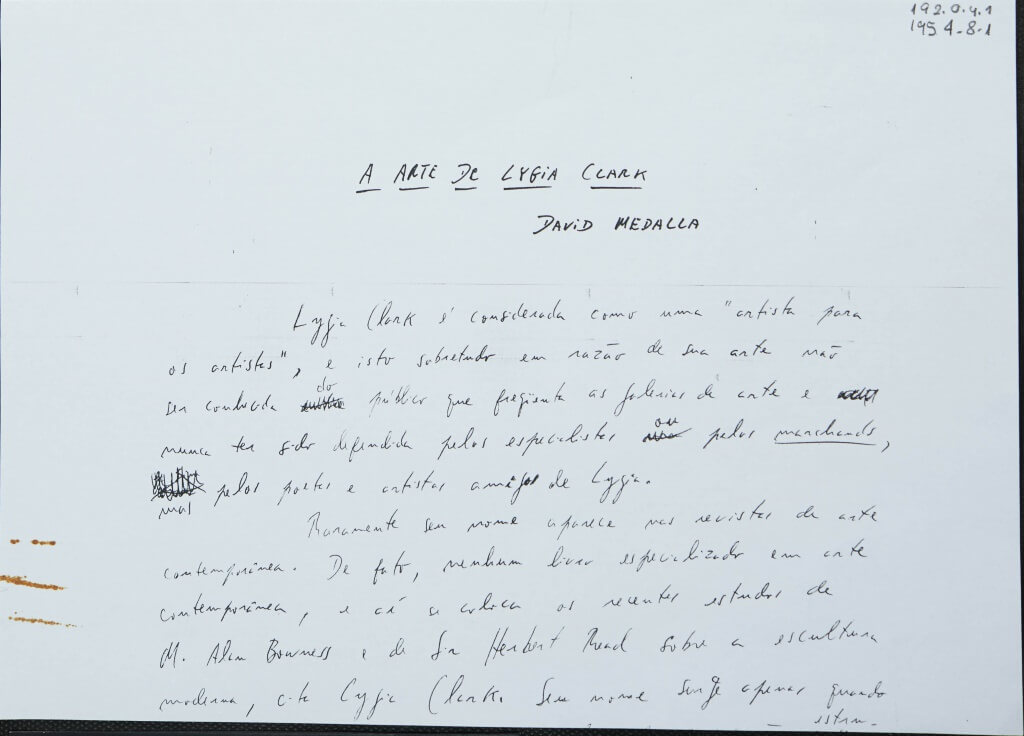 192.0.4.1
1954-8-1
A ARTE DE LYGIA CLARK
DAVID MEDALLA
Lygia Clark é considerada como uma "artista para
os artistas", e isto sobretudo em razão de sua arte não
ser conhecida do público que freqüenta as galerias de arte e
nunca ter sido defendida pelos especialistas ou pelos marchands,
mas pelos poetas e artistas amigos de Lygia.
Raramente seu nome aparece nas revistas de arte
contemporânea. De fato, nenhum livro especializado em arte
contemporânea, e aí se coloca os recentes estudos de
M. Alan Bowness e de Sir Herbert Read sobre a escultura
moderna, cita Lygia Clark. Seu nome surge apenas quando